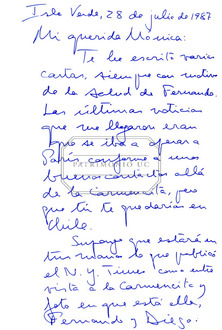 Isla Verde, 28 de julio de 1987
Mi querida Mónica:
Te he escrito varias
cartas, siempre con motivo
de la salud de Fernando.
Las últimas noticias
que me llegaron eran
que se iba a operar a
París conforme a unos
buenos contactos allá
de la Carmencita, pero
que tú te quedarías en
Chile.
Supongo que estará en
tus manos lo que publicó
el N.Y. Times como entre
vista a la Carmencita y
foto en que está ella,
Fernando y Diego.
PATRIMONIO UC